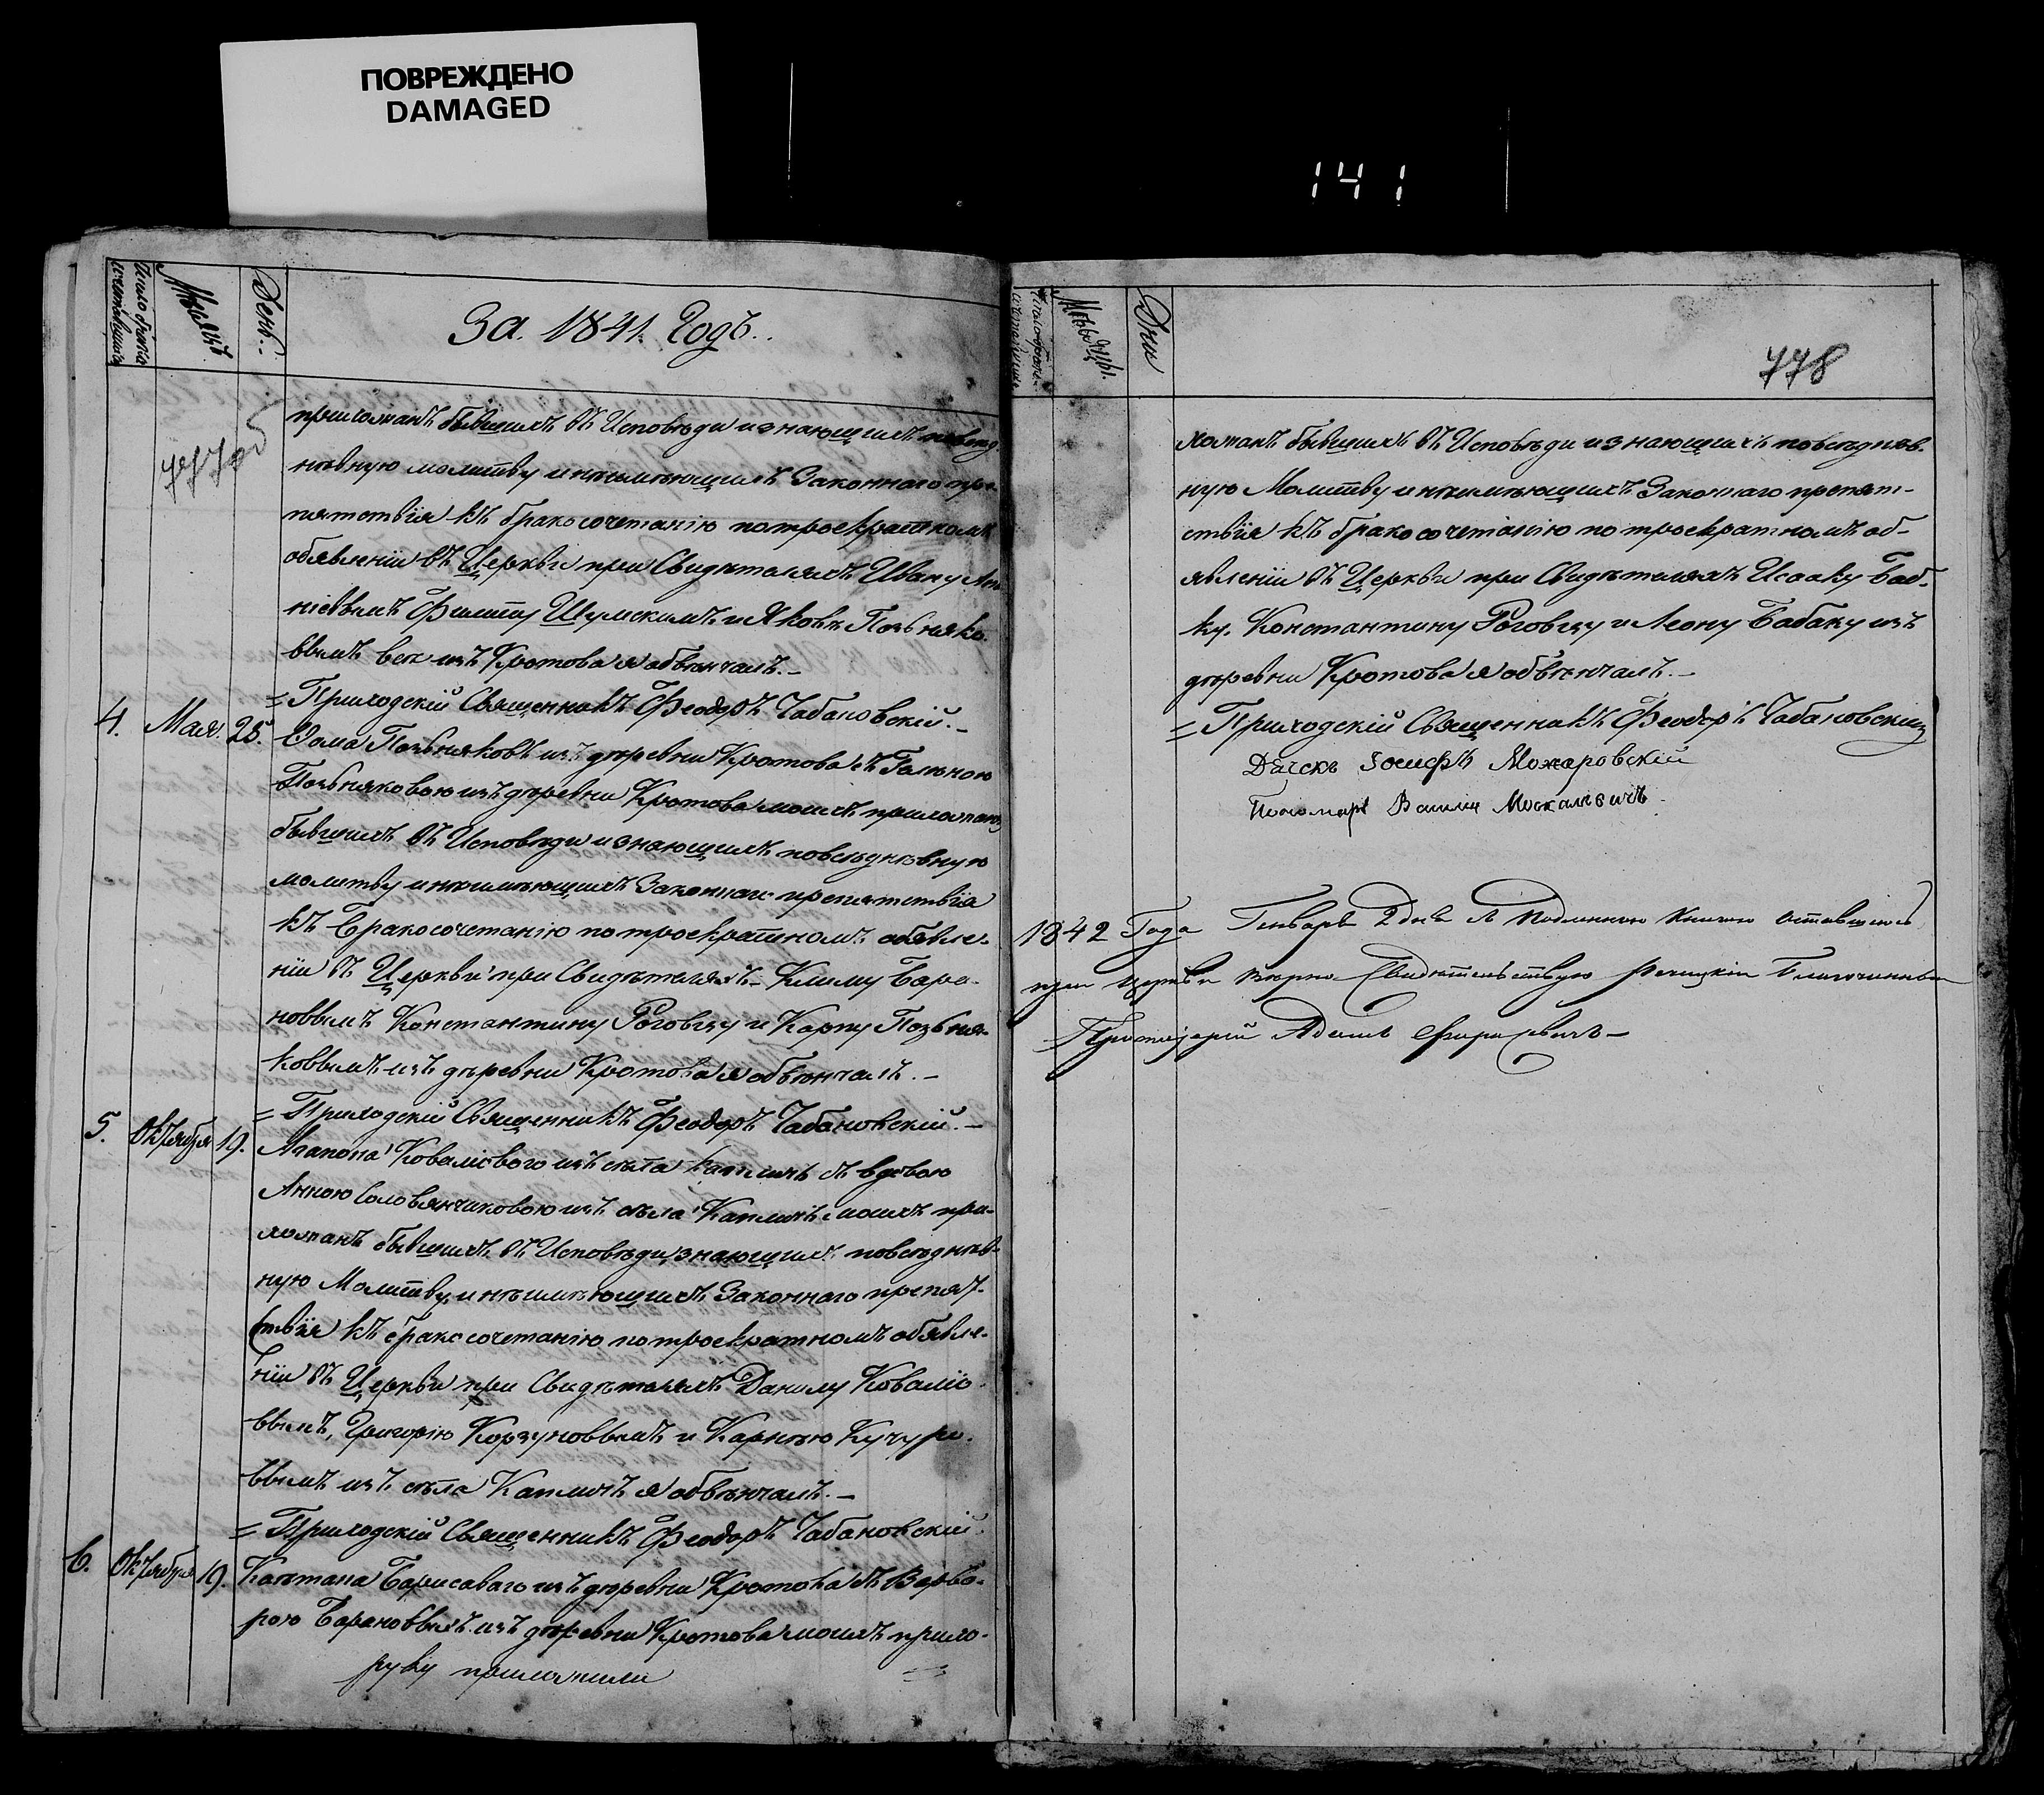 ПОВРЕЖДЕНО
DAMAGED
141
Число брако
сочетавшихся
Мѣсяцъ
День.
За 1841. Годъ..
777об
прихожанъ бывшихъ въ Исповѣди и знающихъ повсед
нѣвную молитву и неимѣющихъ Законнаго пре
пятствія къ бракосочетанію потроекратномъ
обявленіи въ Церкви при Свидѣтеляхъ Ивану
Филиппу Шумскимъ и Яковъ Позьняко
ввымъ всѣ изъ Кротова я обвѣнчалъ.
= Приходскій Священникъ Феодоръ Чабановскій.
4. Мая. 25. Фома Позьняковъ изъ деревни Кротова съ Галиною
Позьняковою изъ деревни Кротова моихъ прихожанъ
бывшихъ въ Исповѣди и знающихъ повседнѣвную
молитву и неимѣющихъ Законнаго препятствія
къ Бракосочетанію потроекратномъ обявле-
ніи въ Церкви при Свидѣтеляхъ Климу Бара-
новвымъ Константину Роговцу и Карпу Позьня-
коввымъ изъ деревни Кротова я обвѣнчалъ.
= Приходскій Священникъ Феодоръ Чабановскій.
5. Октября 19. Агапона Ковалiового изъ села Капличъ съ вдовою
Анною Соловянчиковою изъ села Капличъ моихъ при-
хожанъ бывшихъ въ Исповѣди, знающихъ повседнѣв-
ную Молитву, и неимѣющихъ Законнаго препят-
ствія къ бракосочетанію потроекратномъ обявле-
ніи въ Церкви при Свидѣтеляхъ Данилу Коваліо-
ввымъ, Григорію Корзуноввымъ и Карнѣю Кучуро-
ввымъ изъ села Капличъ я обвѣнчалъ.
= Приходскій Священникъ Феодоръ Чабановскій.
6. Октября 19. Каетана Барисаваго изъ деревни Кротова съ Варва-
рою Барановвыхъ изъ деревни Кротова моихъ прихо-
руку приложили
Число брако
сочетавшихся
Мѣсяцы.
Дни
778
хожанъ бывшихъ въ Исповѣди и знающихъ повседнѣв-
ную Молитву и неимѣющихъ Законнаго препят-
ствія къ бракосочетанію потроекратномъ об-
явленіи въ Церкви при Свидѣтеляхъ Исааку Баб-
ку, Константину Роговцу и Леону Бабаку изъ
деревни Кротова я обвѣнчалъ.
= Приходскій Священникъ Феодоръ Чабановскій
Дячекъ Іосифъ Можаровскій
Пономарь Василій Москалевичъ
1842 Года Генваря 2 дня съ подлинною Книгою оставшеюся
при церкви вѣрно Свидѣтельствую Речицкій Благочинный
Протоіерей Адамъ